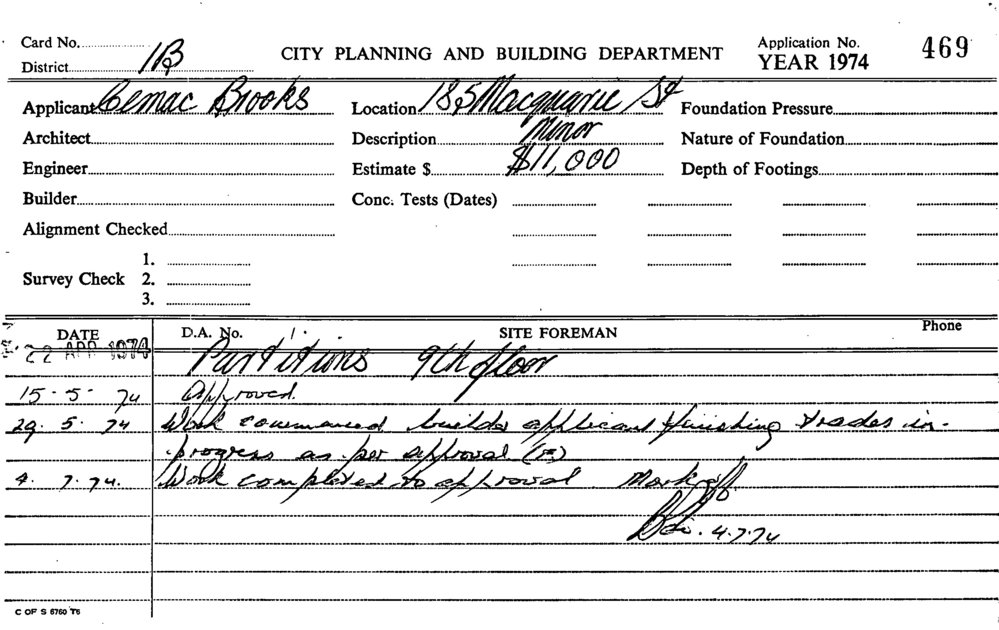 Card No. CITY PLANNING AND BUILDING DEPARTMENT Application No. 469
District 1B YEAR 1974
Applicant Cemac Brooks Location 185 Macquarie St Foundation Pressure
Architect Description Minor Nature of Foundation
Engineer Estimate $ $11,000 Depth of Footings
Builder Conc. Tests (Dates)
Alignment Checked
1.
Survey Check 2.
3.
DATE D.A. No. SITE FOREMAN Phone
22 APR 1974 Partitions 9th floor
15-5-74 Approved.
29.5.74 Work commenced builder applicant finishing trades in
progress as per approval
4.7.74. Work completed to approval. Mark off
4.7.74
C OF S 6760 T6